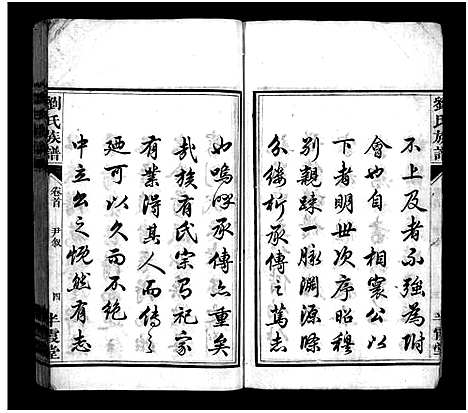 劉氏族譜
不上及者不強為附
會也自 相裏公以
下者明世次序昭穆
別親疎一脉淵源條
分縷析承傳之篤志
如嗚呼承傳亦重矣
哉族有氏宗有祀家
有業得其人而傳之
廼可以久而不絶
中立出之慨然有志
劉氏族譜
卷首
尹敘
四
半霞堂